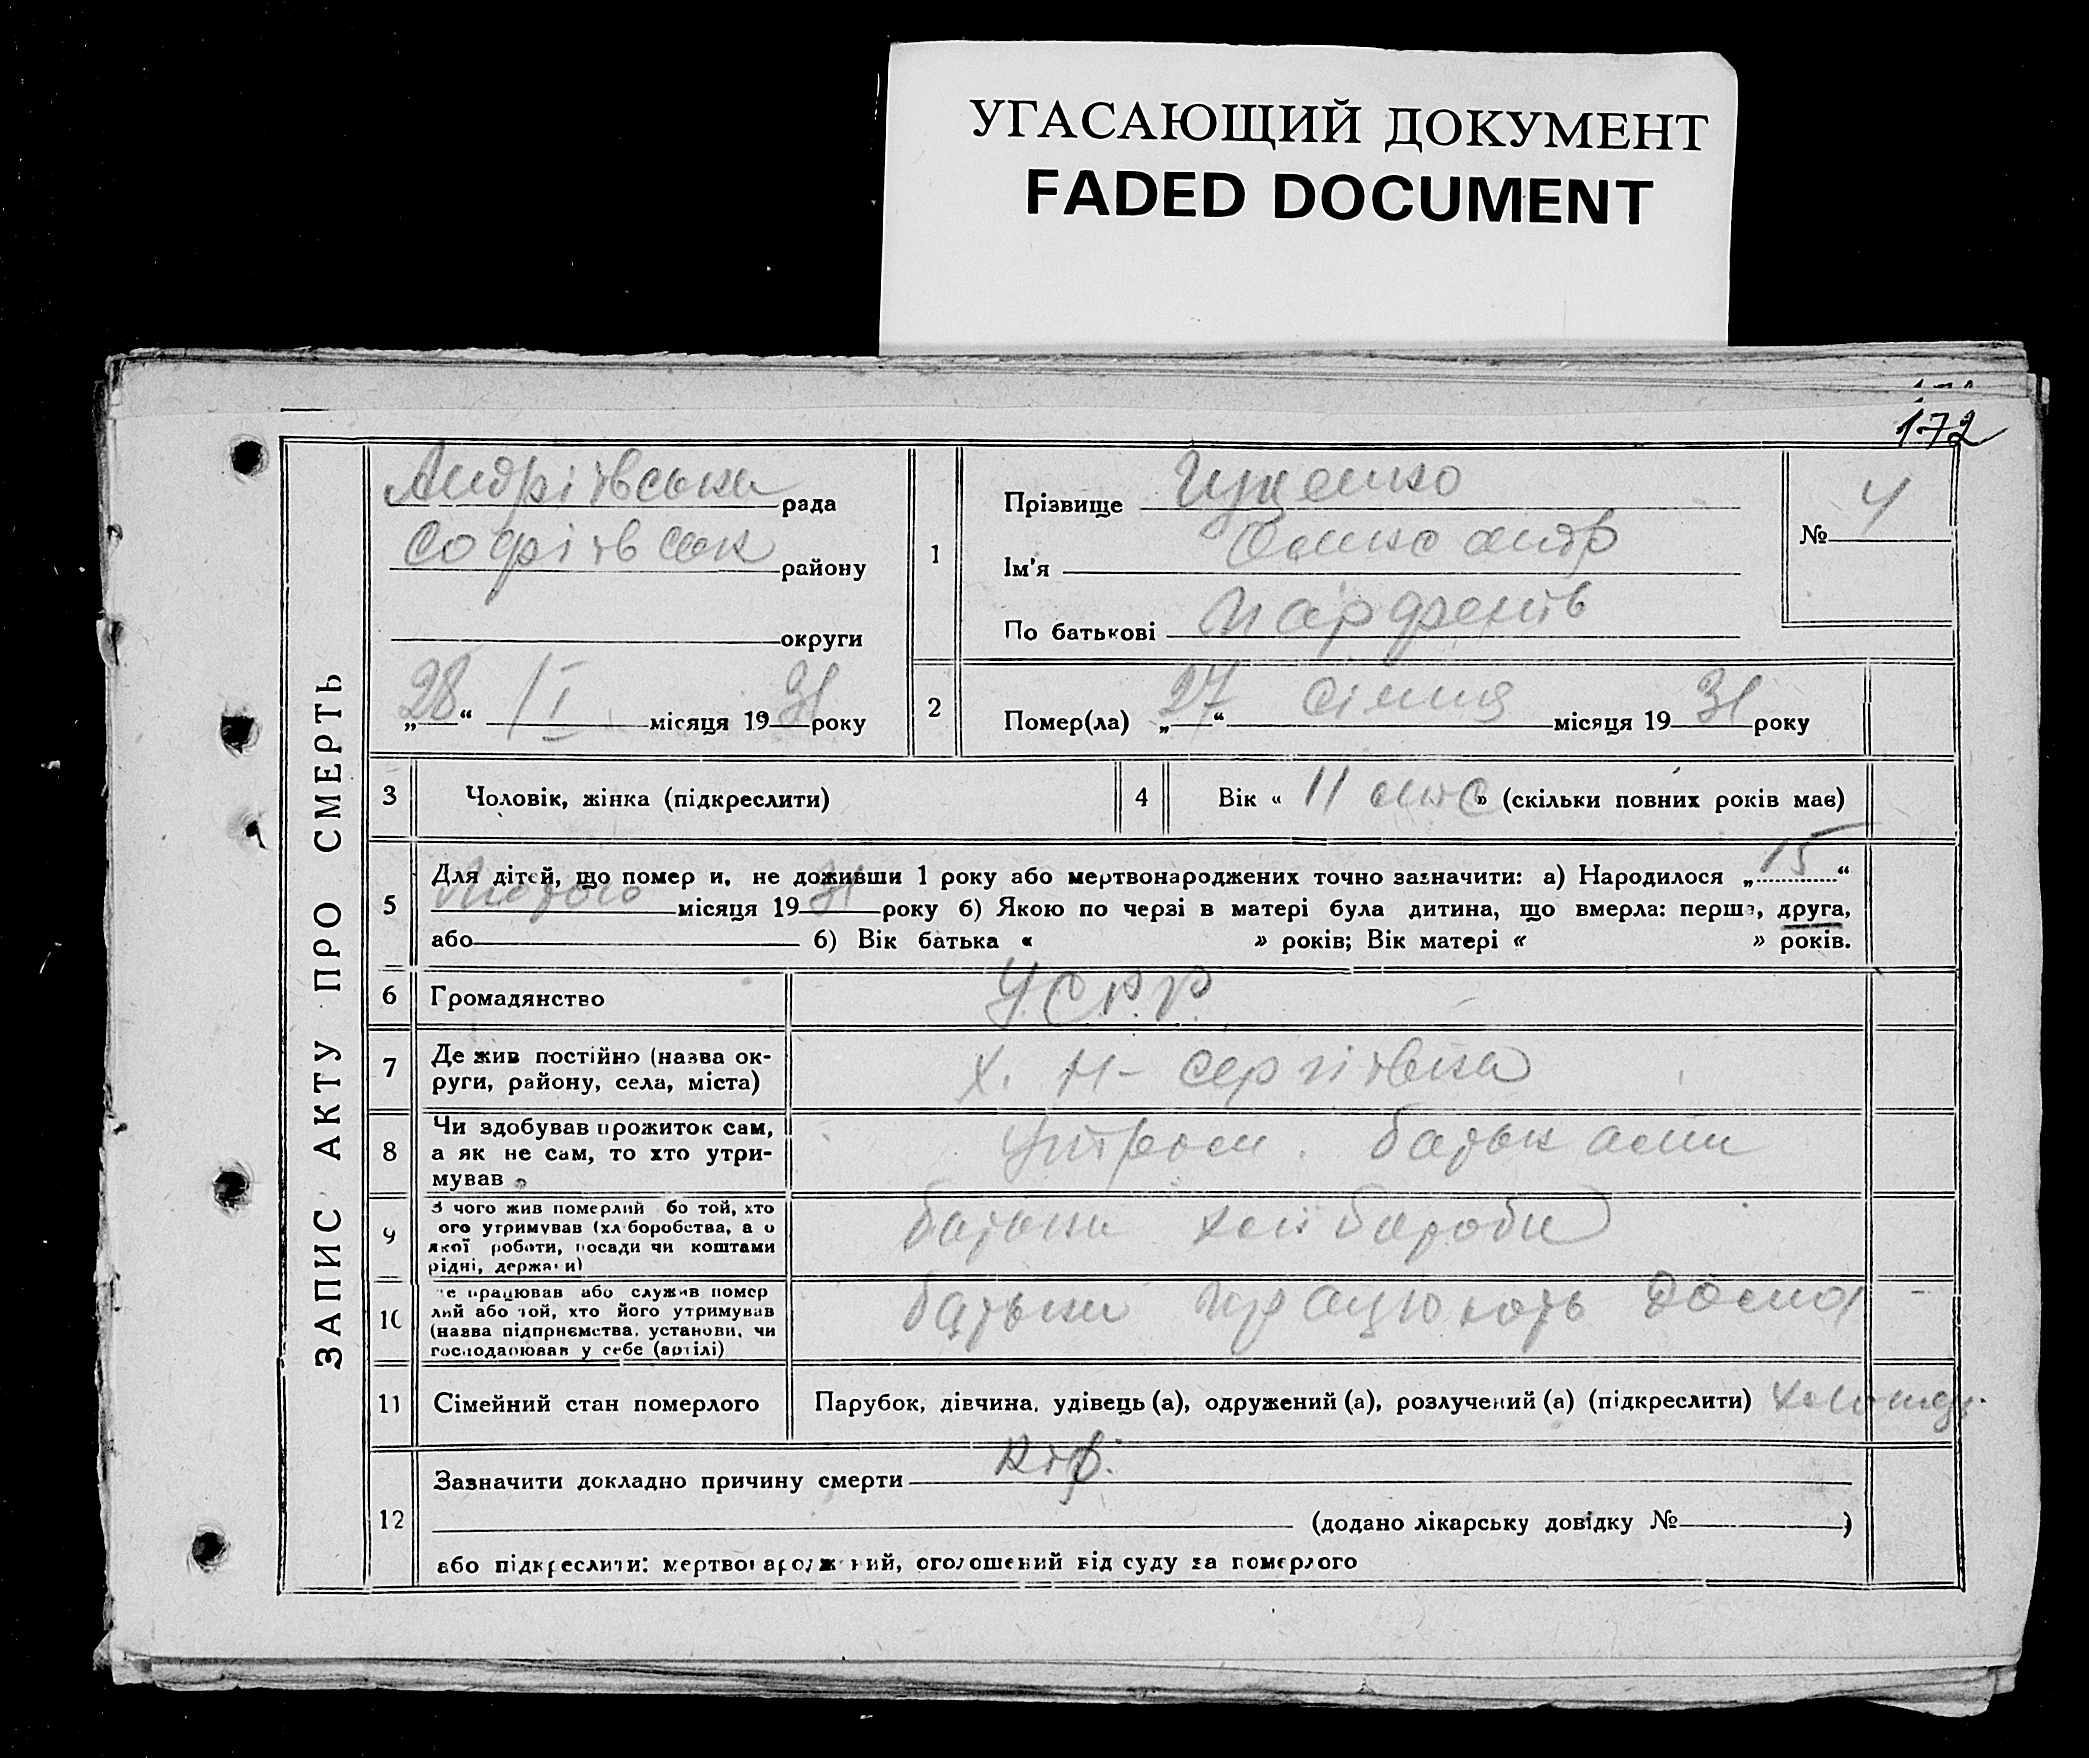 УГАСАЮЩИЙ ДОКУМЕНТ
FADED DOCUMENT
172
ЗАПИС АКТУ ПРО СМЕРТЬ
Андріївська рада
Софіївськ району
округи
„28“ I місяця 1931 року
1
Прізвище
Ім'я Олександр
По батькові Парфенів
№ 4
2
Помер(ла) „27“ січня місяця 1931 року
3 Чоловік, жінка (підкреслити)
4 Вік « 11 міс » (скільки повних років має)
5
Для дітей, що помер и, не доживши 1 року або мертвонароджених точно зазначити: а) Народилося „15“
Лютого місяця 1931 року б) Якою по черзі в матері була дитина, що вмерла: перша, друга,
або б) Вік батька « » років; Вік матері « » років.
6 Громадянство У.С.Р.Р.
7 Де жив постійно (назва ок-
руги, району, села, міста) х. Н-Сергіївка
8 Чи здобував прожиток сам,
а як не сам, то хто утри-
мував
батьками
9 З чого жив померлий бо той, хто
ого утримував (хліборобства, а о
якої роботи, посади чи коштами
рідні, держави)
батьки хлібороби
10 е працював або служив помер
лий або той, хто його утримував
(назва підприємства, установи, чи
господарював у себе (артілі)
батьки працюють дома
11 Сімейний стан померлого Парубок, дівчина, удівець (а), одружений (а), розлучений (а) (підкреслити)
12
Зазначити докладно причину смерти
(додано лікарську довідку № )
або підкреслити: мертвонароджений, оголошений від суду за померлого